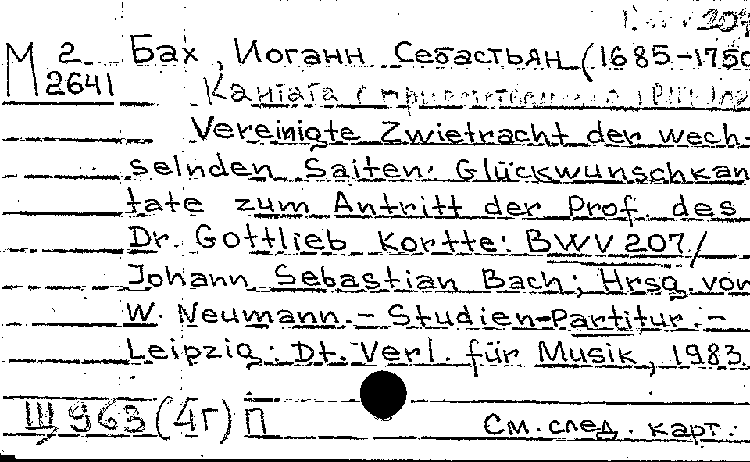 BWV 207
М 2 Бах, Иоганн Себастьян (1685-1750
2641 Кантата с приветствен
Vereinigte Zwietracht der wech-
selnden Saiten: Glückwunschkan
tate zum Antritt der Prof. des
Dr. Gottlieb Kortte: BWV 207 /
Johann Sebastian Bach; Hrsg. von
W. Neumann. - Studien-Partitur. -
Leipzig: Dt. Verl. für Musik, 1983.
Щ 963 (4г) П См. след. карт.